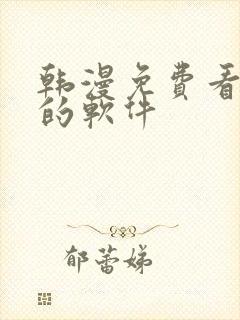 韩漫免費看
的軟件
郁蕾娣